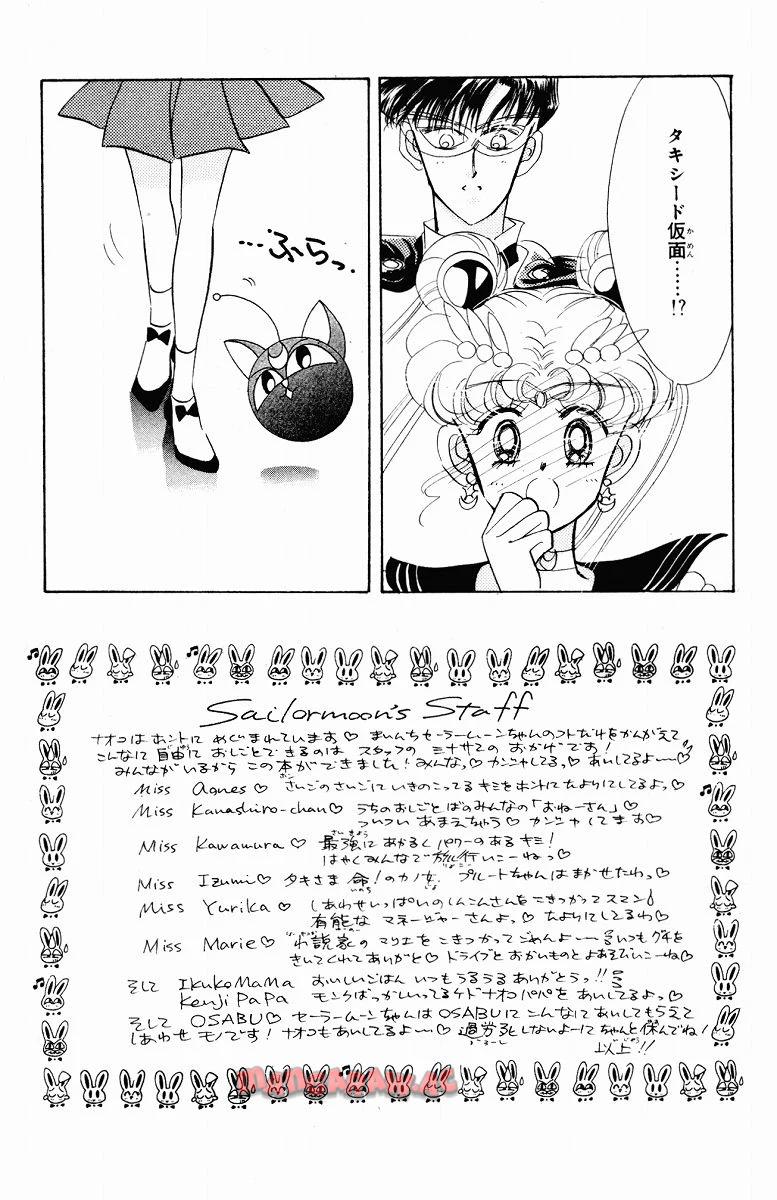 タキシード仮面……!?
かめん
…ふらっ.
Sailormoon's Staff
ナオコはホントに めぐまれています♡ まいんちセーラームーンちゃんのコトだけをかんがえて
こんなに 自由に おしごとできるのは スタッフの ミナサマの おかげです!
みんながいるから この本ができました! みんなっ♡ カンシャしてるっ♡ あいしてるよ〜♡
Miss Agnes♡ さいごのさいごにいきのこってる キミをホントにたよりにしてるよっ♡
Miss Kanashiro-chan♡ うちのおしごとばのみんなの「おねーさん」♡
ついつい あまえちゃう♡ カンシャしてます♡
Miss Kawamura♡ 最強にあかるくパワーのあるキミ!
さいきょう
はやくみんなで 旅行いこーねっ♡
Miss Izumi♡ タキさま 命!のカノ女 プルートちゃんは まかせたわっ♡
いのち じょ
Miss Yurika♡ しあわせいっぱいのしんこんさんをこきつかってスマン!
有能な マネージャーさんよっ♡ たよりにしてるわ♡
Miss Marie♡ 小説家の マリエを こきつかって ごめんよ〜 いつも グチを
きいてくれて ありがと♡ ドライブと おかいものと よろしくね♡
そして Ikuko Mama おいしいごはん いつもうるうる ありがとうっ!!
Kenji Papa モンクばっかいってるケドナオコパパを あいしてるよっ♡
そして OSABU♡ セーラームーンちゃんは OSABUに こんなに あいしてもらえて
しあわせ モノです! ナオコもあいしてるよ〜♡ 過労死しないよーに ちゃんと 休んでね!
かろうし
以上!!